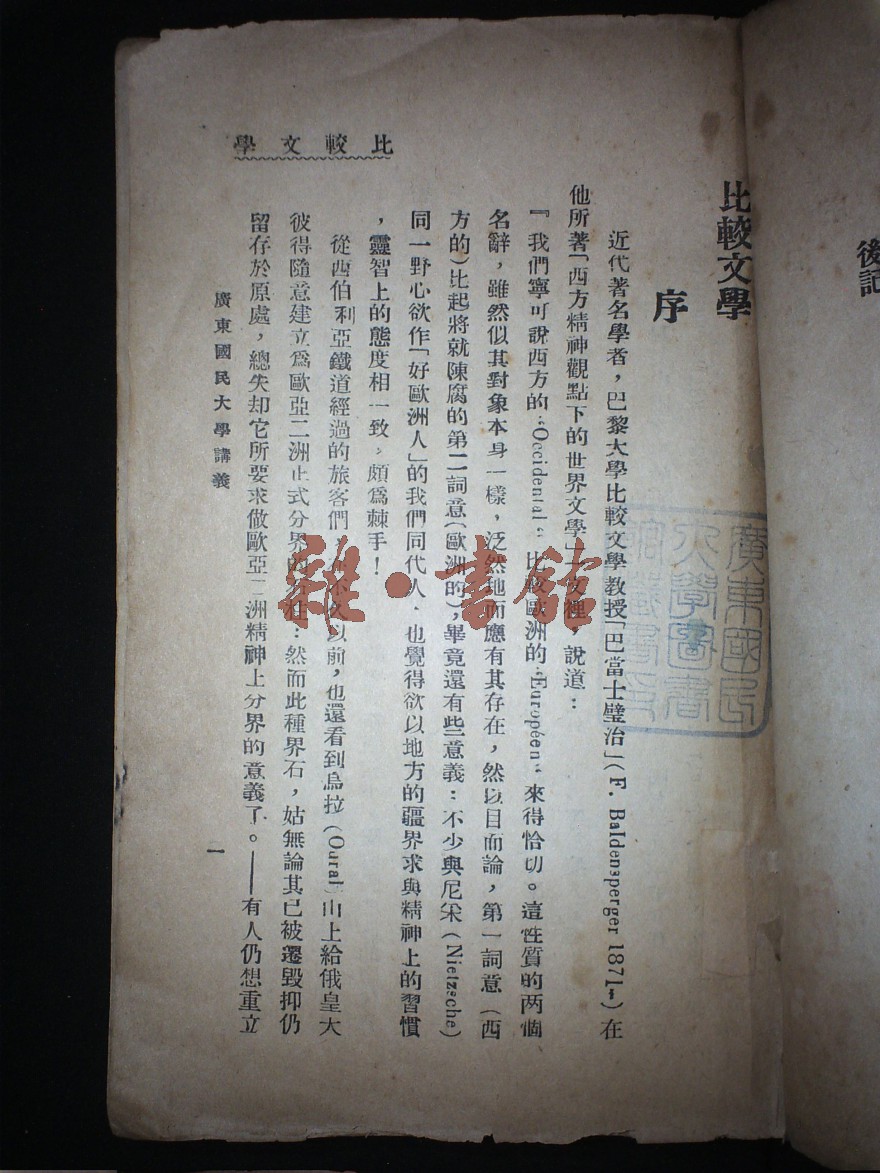 後記
比較文學
序
近代著名學者，巴黎大學比較文學教授「巴當士璧治」（F. Baldensperger 1871-）在
他所著「西方精神觀點下的世界文學」一文裡，說道：
『我們寧可說西方的“Occidental“比較歐洲的“Européen“來得恰切。這性質的两個
名辭，雖然似其對象本身一樣，泛然地而應有其存在，然以目而論，第一詞意（西
方的）比起將就陳腐的第二詞意（歐洲的），畢竟還有些意義：不少與尼采（Nietzsche）
同一野心欲作「好歐洲人」的我們同代人，也覺得欲以地方的疆界求與精神上的習慣
，靈智上的態度相一致，頗爲棘手！
從西伯利亞鐵道經過的旅客們，不久以前，也還看到烏拉（Oural）山上給俄皇大
彼得隨意建立爲歐亞二洲正式分界的石柱：然而此種界石，姑無論其已被遷毀抑仍
留存於原處，總失却它所要求做歐亞二洲精神上分界的意義了。——有人仍想重立
比較文學
廣東國民大學講義
一
廣東國民
大學圖書
館藏書
雜·書館